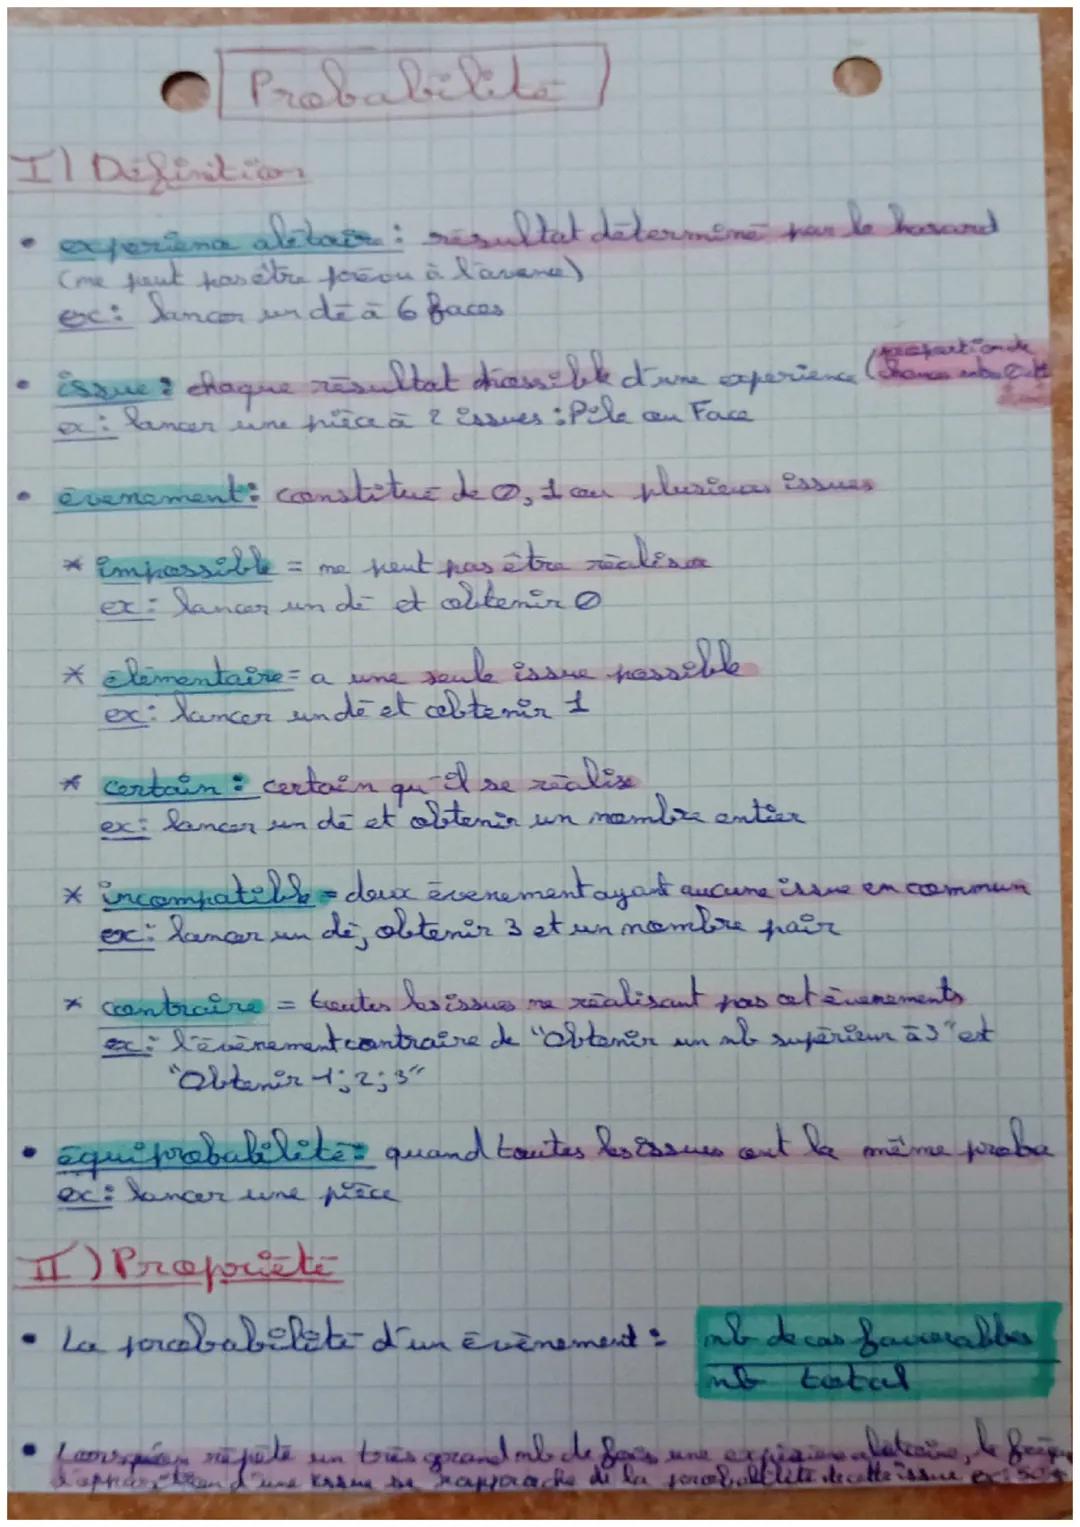 Probabilité
I) Définition
• experience alétoire : résultat déterminé par le hasard
(ne peut pas être prévu à l'avance)
ex : lancer un dé à 6 faces
• issue : chaque résultat possible d'une experience (proportion de
chance entre 0 et
ex : lancer une pièce à 2 issues : Pile ou Face
• évenement : constitué de 0, 1 ou plusieurs issues
* impossible = ne peut pas être réalisé
ex : lancer un dé et obtenir 0
* élémentaire = a une seule issue possible
ex : lancer un dé et obtenir 1
* certain : certain qu'il se réalise
ex : lancer un dé et obtenir un nombre entier
* incompatible = deux évenement ayant aucune issue en commun
ex : lancer un dé, obtenir 3 et un nombre pair
* contraire = toutes les issues ne réalisant pas cet évenements
ex : l'évènement contraire de "Obtenir un nb supérieur à 3" est
"Obtenir 1; 2; 3"
• équiprobabilité : quand toutes les issues ont la même proba
ex : lancer une pièce
II) Propriété
• La probabilité d'un évènement : nb de cas favorables
nb total
• Lorsqu'on répète un très grand nb de fois une expérience alétoire, la
d'apparition d'une issue se rapproche de la probabilité de cette issue ex : 50